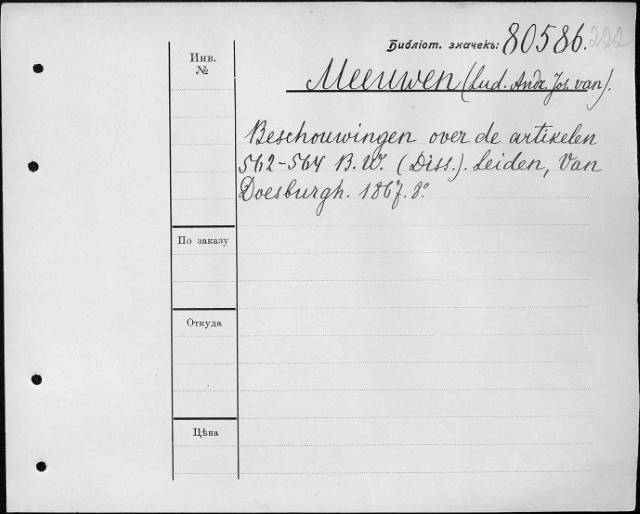 Библіот. значекъ: 80586. 222
Инв.
№
Meeuwen (Lud. Andr. Joh. van).
Beschouwingen over de artikelen
562-564 B. W. (Diss.). Leiden, Van
Doesburgh. 1867. 8°
По заказу
Откуда
Цѣна